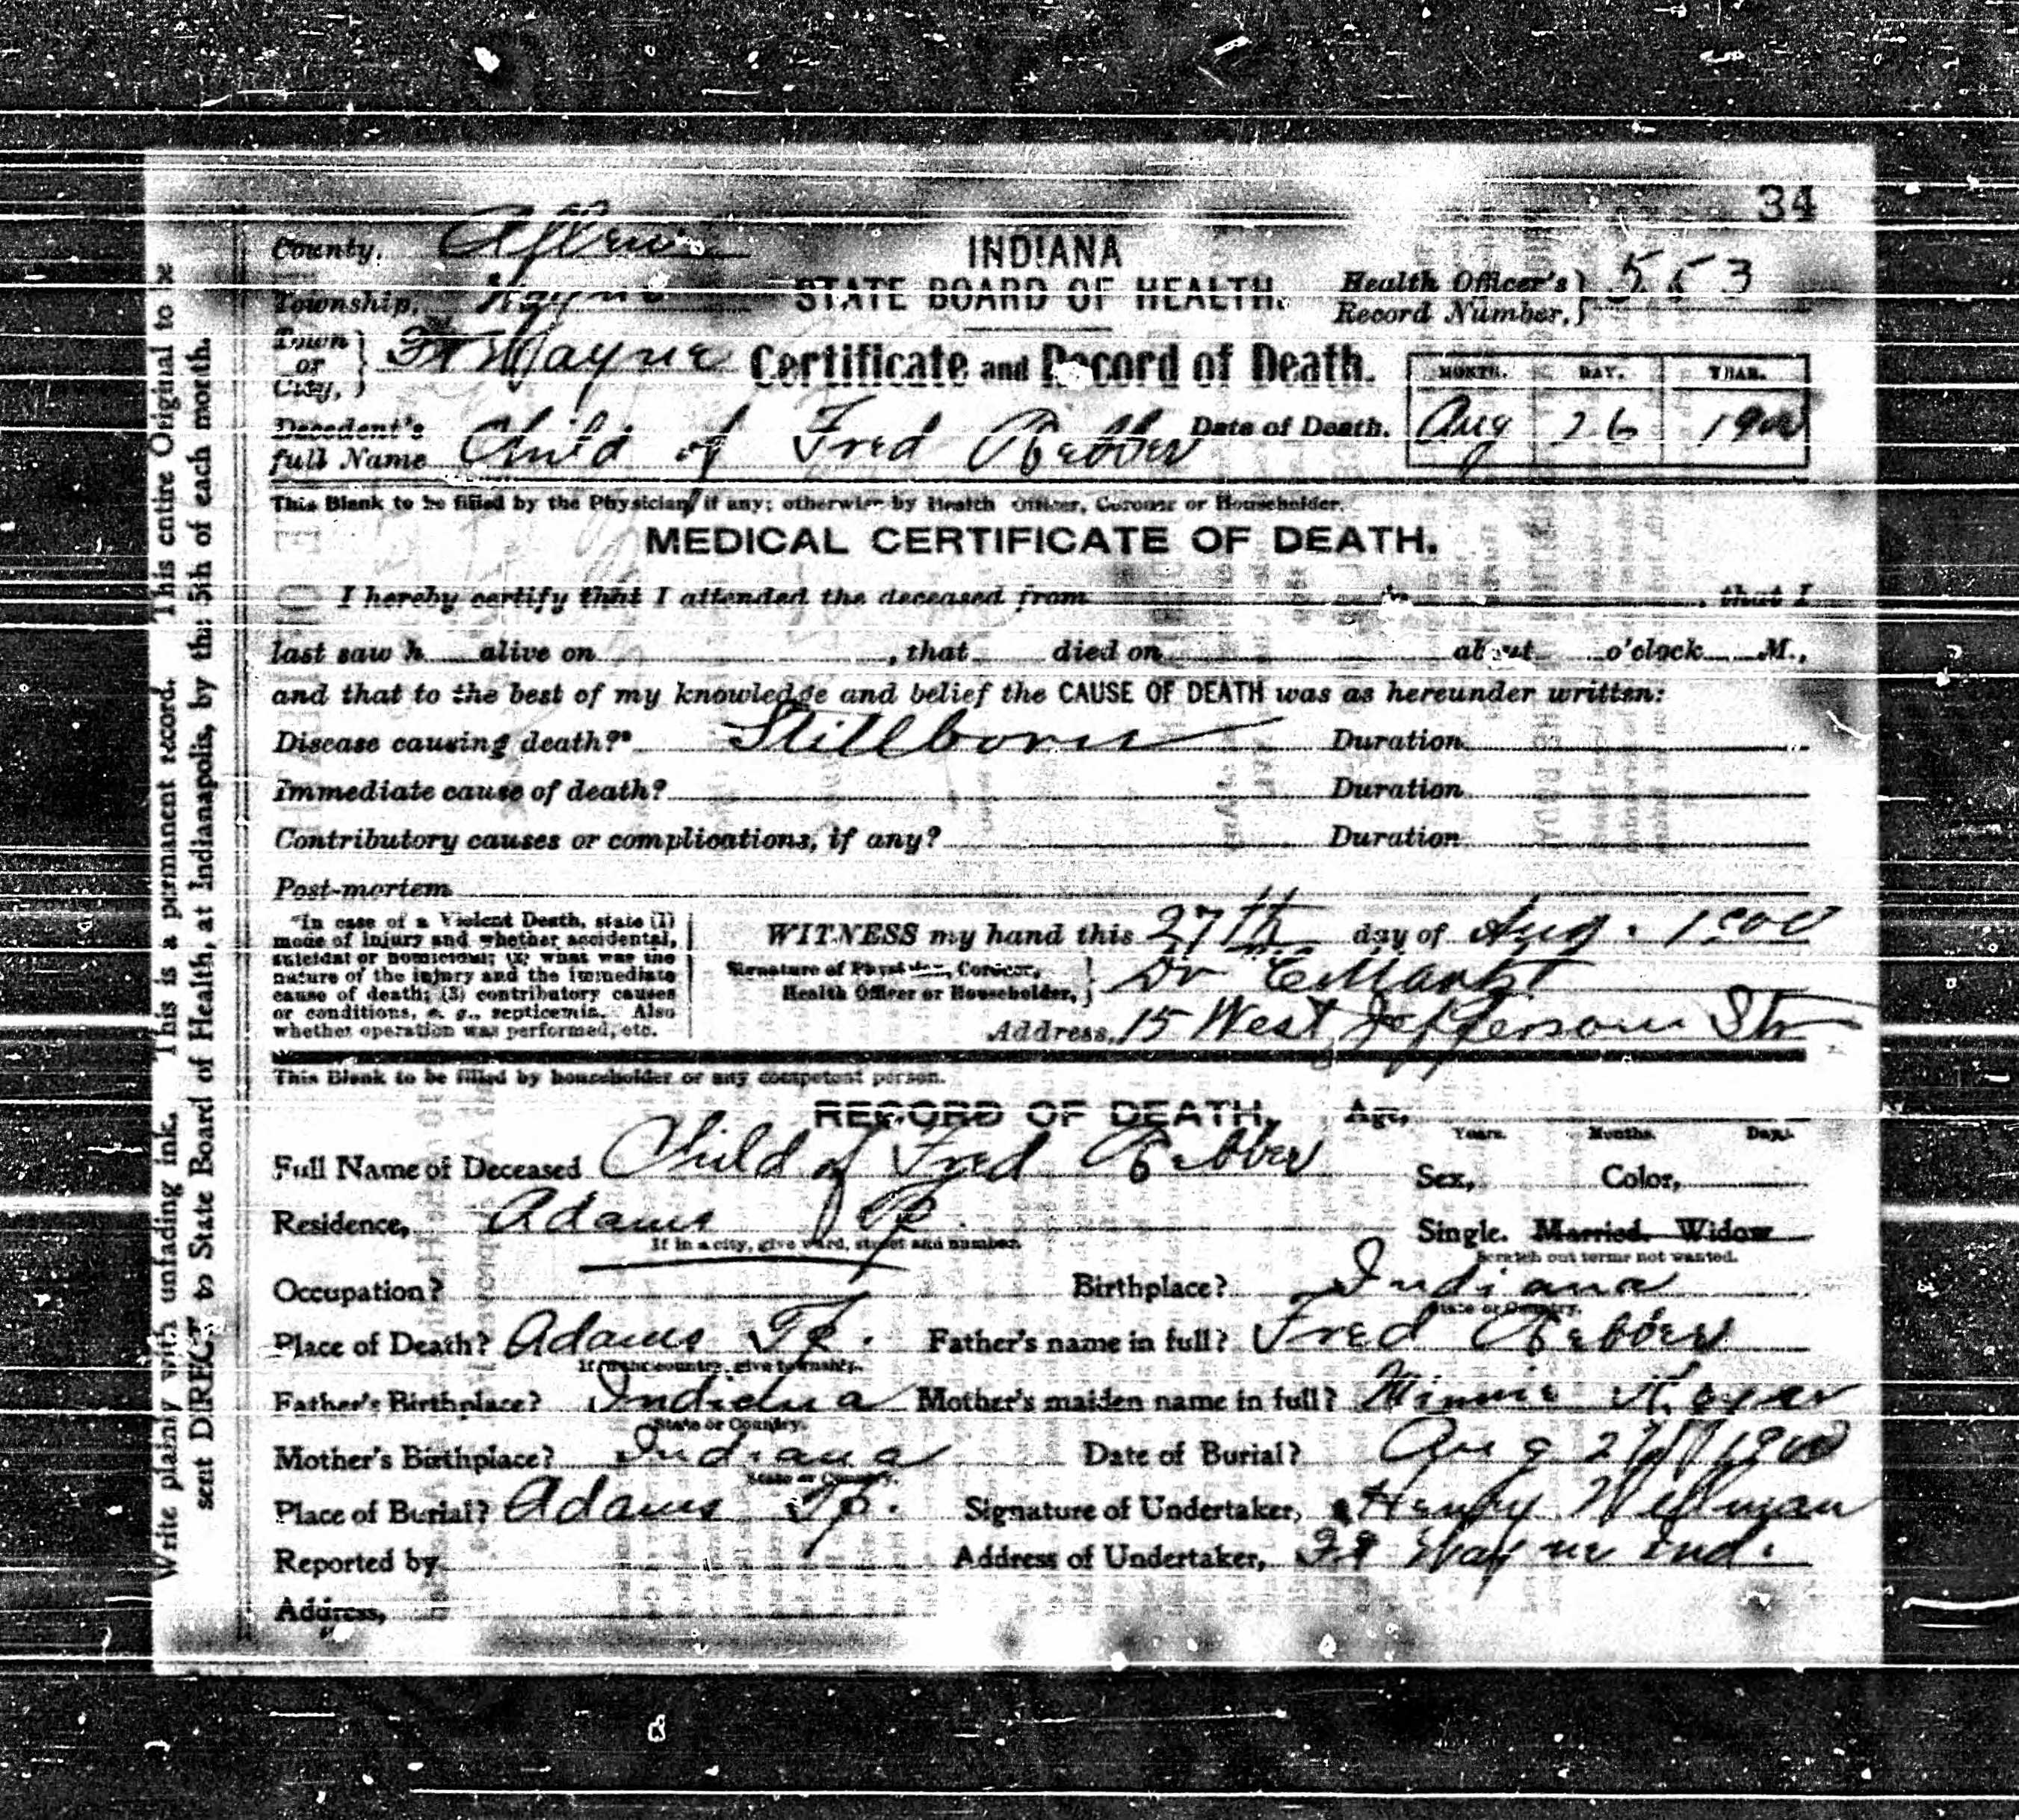 34
County, Allen
INDIANA
Township, Wayne
STATE BOARD OF HEALTH.
Health Officer's Record Number, 553
Town or City, Ft Wayne
Certificate and Record of Death.
MONTH. DAY. YEAR.
Decedent's full Name Child of Fred Rebber Date of Death. Aug 26 1900
This Blank to be filled by the Physician, if any; otherwise by Health Officer, Coroner or Householder.
MEDICAL CERTIFICATE OF DEATH.
I hereby certify that I attended the deceased from to , that I
last saw h alive on , that died on about o'clock M.,
and that to the best of my knowledge and belief the CAUSE OF DEATH was as hereunder written:
Disease causing death?* Stillborn Duration
Immediate cause of death? Duration
Contributory causes or complications, if any? Duration
Post-mortem
*In case of a Violent Death, state (1)
mode of injury and whether accidental,
suicidal or homicidal; (2) what was the
nature of the injury and the immediate
cause of death; (3) contributory causes
or conditions, e. g., septicemia. Also
whether operation was performed, etc.
WITNESS my hand this 27th day of Aug. 1900
Signature of Physician, Coroner,
Health Officer or Householder, Dr
Address, 15 West Jefferson Str
This Blank to be filled by householder or any competent person.
RECORD OF DEATH. Age,
Years. Months. Days.
Full Name of Deceased Child of Fred Rebber Sex, Color,
Residence, Adams Tp. Single. Married. Widow
If in a city, give ward, street and number. Scratch out terms not wanted.
Occupation? Birthplace? Indiana
State or Country.
Place of Death? Adams Tp. Father's name in full? Fred Rebber
If in the country, give township.
Father's Birthplace? Indiana Mother's maiden name in full? Minnie
State or Country.
Mother's Birthplace? Indiana Date of Burial? Aug 1900
State or Country.
Place of Burial? Adams Tp. Signature of Undertaker, Henry Wellman
Reported by Address of Undertaker, Ft Wayne Ind.
Address,
Write plainly with unfading ink. This is a permanent record. This entire Original to be
sent DIRECT to State Board of Health, at Indianapolis, by the 5th of each month.